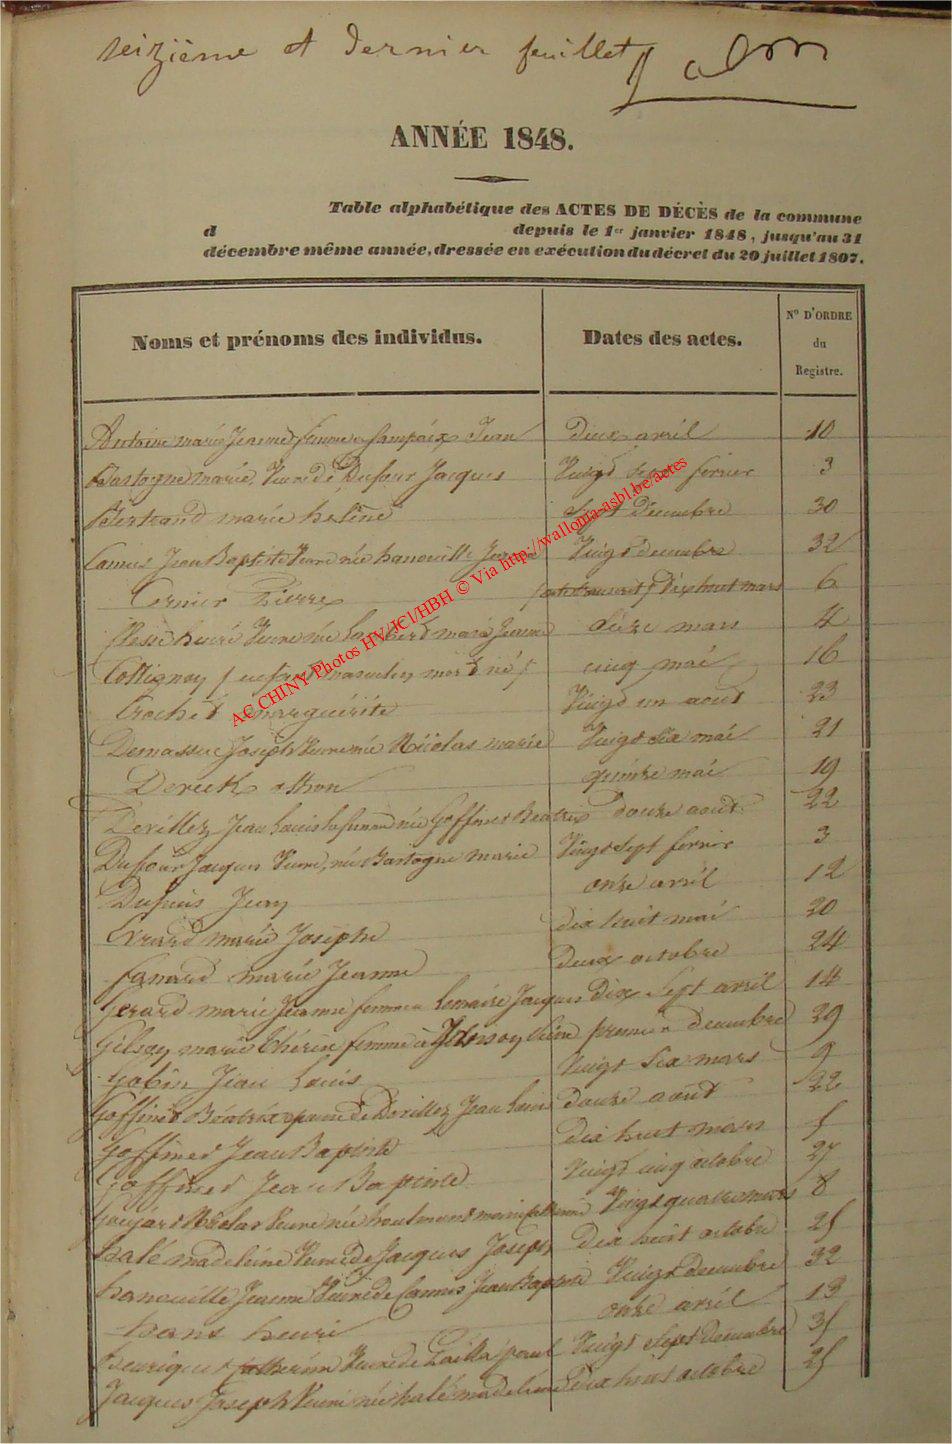 seizième et dernier feuillet
ANNÉE 1848.
Table alphabétique des ACTES DE DÉCÈS de la commune
d depuis le 1er janvier 1848, jusqu'au 31
décembre même année, dressée en exécution du décret du 20 juillet 1807.
Noms et prénoms des individus. Dates des actes. N° D'ORDRE du Registre.
Antoine marie Jeanne femme Jean deux avril 10
Bastogne marie, Veuve de Dufour Jacques Vingt Sept fevrier 3
Bertrand marie heléne Sept Décembre 30
Camus Jean Baptiste Veuve née hanouille Jeanne Vingt decembre 32
Cornier Pierre dix huit mars 6
henri Veuve née Lambert marie Jeanne mars 4
Collignon (enfant masculin mort né) cinq mai 16
Crochet marguérite Vingt un août 23
Joseph Veuve née Nicolas marie Vingt Six mai 21
quinze mai 19
Devillez Jean Louis femme née Goffinet Béatrix douze août 22
Dufour Jacques Veuve, née Bastogne Marie Vingt Sept fevrier 3
Jean onze avril 12
Evrard marie Josephe dix huit mai 20
fanard marie Jeanne deux octobre 24
Gerard marie Jeanne femme Lemaire Jacques dix Sept avril 14
Gilson marie Thérèse femme à premier decembre 29
Gobin Jean Louis Vingt Six mars 9
Goffinet Béatrix epouse de Devillez Jean Louis douze août 22
Goffinet Jean Baptiste dix huit mars 5
Goffinet Jean Baptiste Vingt cinq octobre 27
Nicolas Veuve née Vingt quatre mars 8
halé madeleine Veuve de Jacques Joseph dix huit octobre 25
hanouille Jeanne Veuve de Camus Jean Baptiste Vingt decembre 32
hans henri onze avril 13
henriquet Catherine Veuve de paul Vingt Sept decembre 35
Jacques Joseph Veuve née halé madeleine Dix huit octobre 25
AC CHINY Photos HV/JCl/HBH © Via http://wallonia-asbl.be/actes